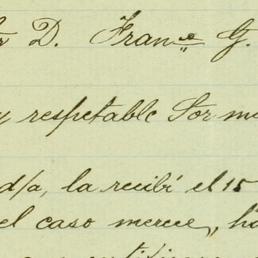 D. Franco G.
respetable Sor m
d/a, la recibí el 15
el caso merece, h